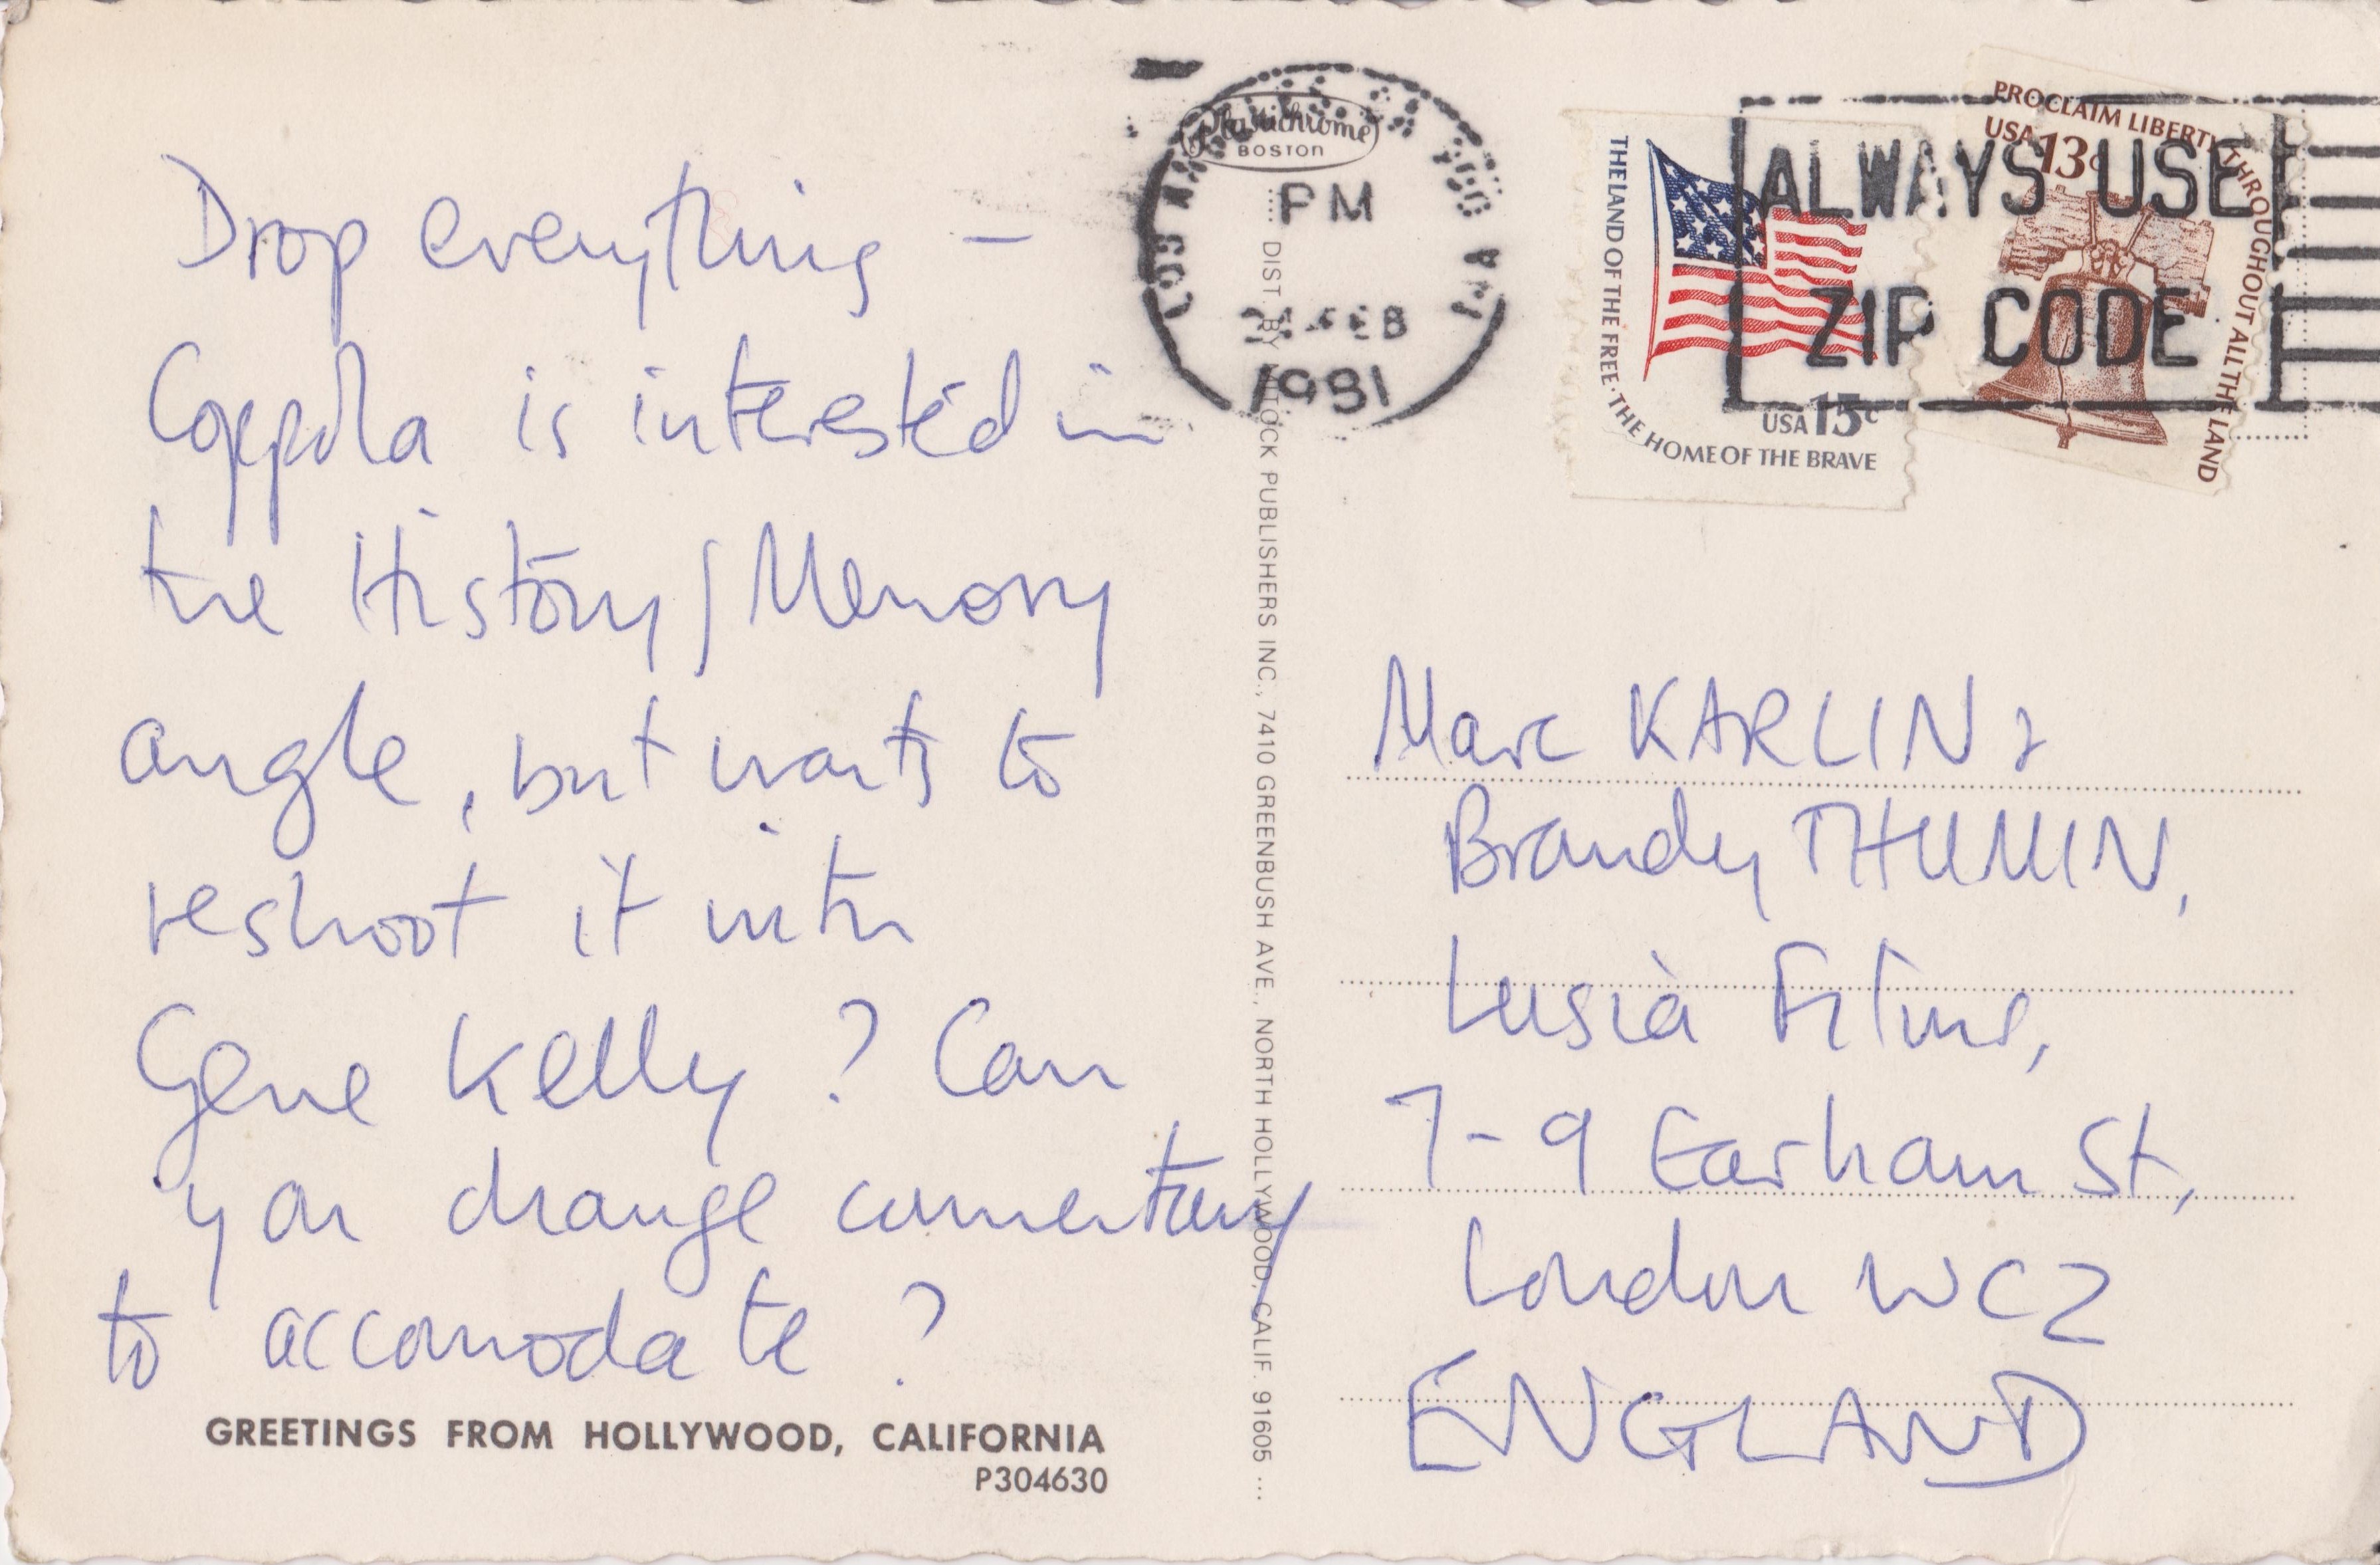 Drop everything —
Coppola is interested in
the History/Memory
angle, but wants to
reshoot it with
Gene Kelly? Can
you change commentary
to accomodate?
GREETINGS FROM HOLLYWOOD, CALIFORNIA
P304630
Plastichrome
BOSTON
PM
FEB
1981
.... DIST. BY MITOCK PUBLISHERS INC., 7410 GREENBUSH AVE., NORTH HOLLYWOOD, CALIF. 91605 ...
THE LAND OF THE FREE·THE HOME OF THE BRAVE
USA 15c
PROCLAIM LIBERTY THROUGHOUT ALL THE LAND
USA 13c
ALWAYS USE
ZIP CODE
Marc KARLIN &
Brandy THUMIN,
Lusia Films,
7-9 Earlham St,
London WC2
ENGLAND